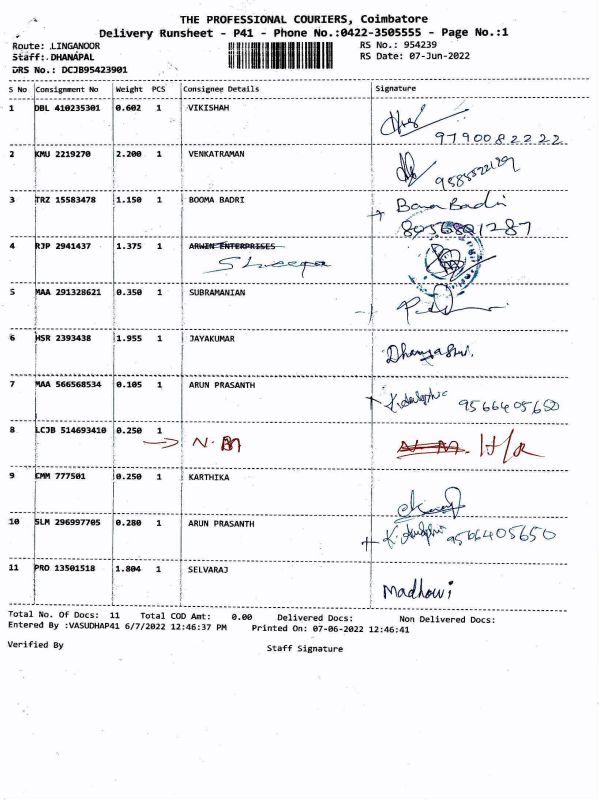 THE PROFESSIONAL COURIERS, Coimbatore
Delivery Runsheet - P41 - Phone No.:0422-3505555 - Page No.:1
Route: LINGANOOR RS No.: 954239
Staff: DHANAPAL RS Date: 07-Jun-2022
DRS No.: DCJB95423901
S No Consignment No Weight PCS Consignee Details Signature
1 DBL 410235301 0.602 1 VIKISHAH
9790082222
2 KMU 2219270 2.200 1 VENKATRAMAN
3 TRZ 15583478 1.150 1 BOOMA BADRI
Badri
4 RJP 2941437 1.375 1 ARWIN ENTERPRISES
5 MAA 291328621 0.350 1 SUBRAMANIAN
6 HSR 2393438 1.955 1 JAYAKUMAR
7 MAA 566568534 0.105 1 ARUN PRASANTH
9566405650
8 LCJB 514693410 0.250 1 N.M N.M. H/R
9 CMM 777501 0.250 1 KARTHIKA
10 SLM 296997705 0.280 1 ARUN PRASANTH
9566405650
11 PRO 13501518 1.804 1 SELVARAJ
Madhowi
Total No. Of Docs: 11 Total COD Amt: 0.00 Delivered Docs: Non Delivered Docs:
Entered By :VASUDHAP41 6/7/2022 12:46:37 PM Printed On: 07-06-2022 12:46:41
Verified By Staff Signature